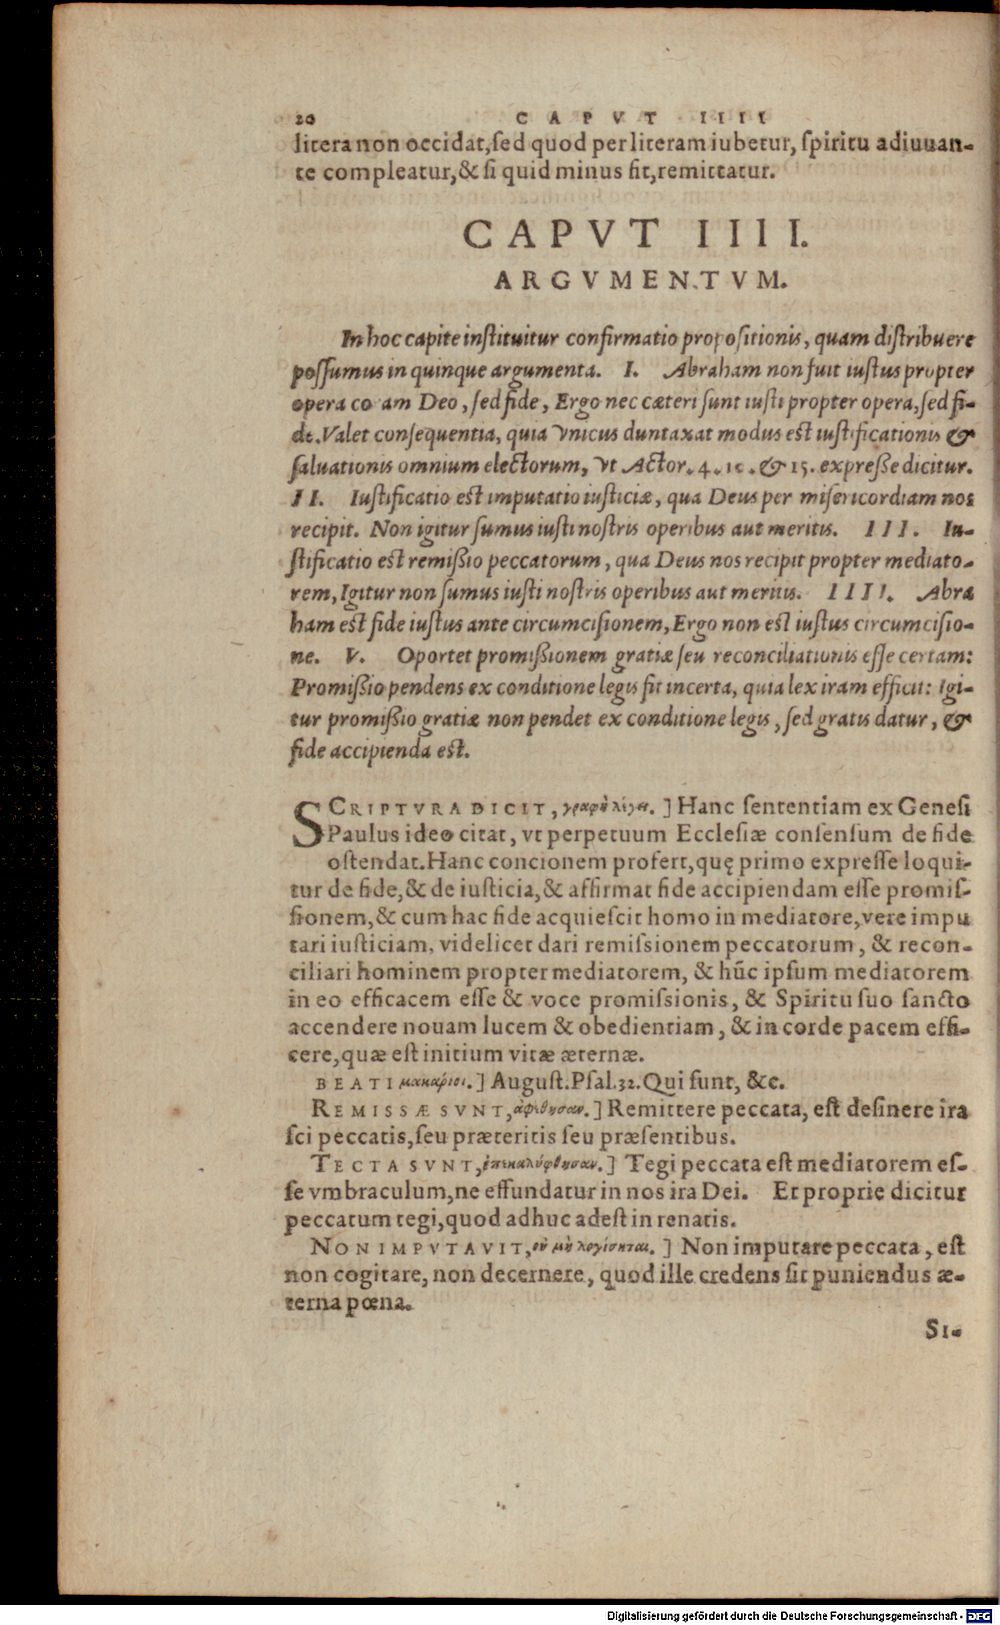 20 CAPVT IIII
litera non occidat, sed quod per literam iubetur, spiritu adiuuan-
te compleatur, & si quid minus sit, remittatur.
CAPVT IIII.
ARGVMENTVM.
In hoc capite instituitur confirmatio propositionis, quam distribuere
possumus in quinque argumenta. I. Abraham non fuit iustus propter
opera co am Deo, sed fide, Ergo nec cæteri sunt iusti propter opera, sed fi-
de. Valet consequentia, quia vnicus duntaxat modus est iustificationis &
saluationis omnium electorum, vt Actor. 4. 10. & 15. expresse dicitur.
II. Iustificatio est imputatio iusticiæ, qua Deus per misericordiam nos
recipit. Non igitur sumus iusti nostris operibus aut meritis. III. Iu-
stificatio est remissio peccatorum, qua Deus nos recipit propter mediato-
rem, Igitur non sumus iusti nostris operibus aut meritis. IIII. Abra
ham est fide iustus ante circumcisionem, Ergo non est iustus circumcisio-
ne. V. Oportet promissionem gratiæ seu reconciliationis esse certam:
Promissio pendens ex conditione legis fit incerta, quia lex iram efficit: Igi-
tur promissio gratiæ non pendet ex conditione legis, sed gratis datur, &
fide accipienda est.
SCRIPTVRA DICIT, γραφὴ λέγει.] Hanc sententiam ex Genesi
Paulus ideo citat, vt perpetuum Ecclesiæ consensum de fide
ostendat. Hanc concionem profert, quę primo expresse loqui-
tur de fide, & de iusticia, & affirmat fide accipiendam esse promis-
sionem, & cum hac fide acquiescit homo in mediatore, vere impu
tari iusticiam, videlicet dari remissionem peccatorum, & recon-
ciliari hominem propter mediatorem, & hūc ipsum mediatorem
in eo efficacem esse & voce promissionis, & Spiritu suo sancto
accendere nouam lucem & obedientiam, & in corde pacem effi-
cere, quæ est initium vitæ æternæ.
BEATI μακάριοι.] August. Psal. 32. Qui sunt, &c.
REMISSÆ SVNT, ἀφέθησαν.] Remittere peccata, est desinere ira
sci peccatis, seu præteritis seu præsentibus.
TECTA SVNT, ἐπεκαλύφθησαν.] Tegi peccata est mediatorem es-
se vmbraculum, ne effundatur in nos ira Dei. Et proprie dicitur
peccatum tegi, quod adhuc adest in renatis.
NON IMPVTAVIT, οὐ μὴ λογίσηται.] Non imputare peccata, est
non cogitare, non decernere, quod ille credens sit puniendus æ-
terna pœna.
SI-
Digitalisierung gefördert durch die Deutsche Forschungsgemeinschaft - DFG